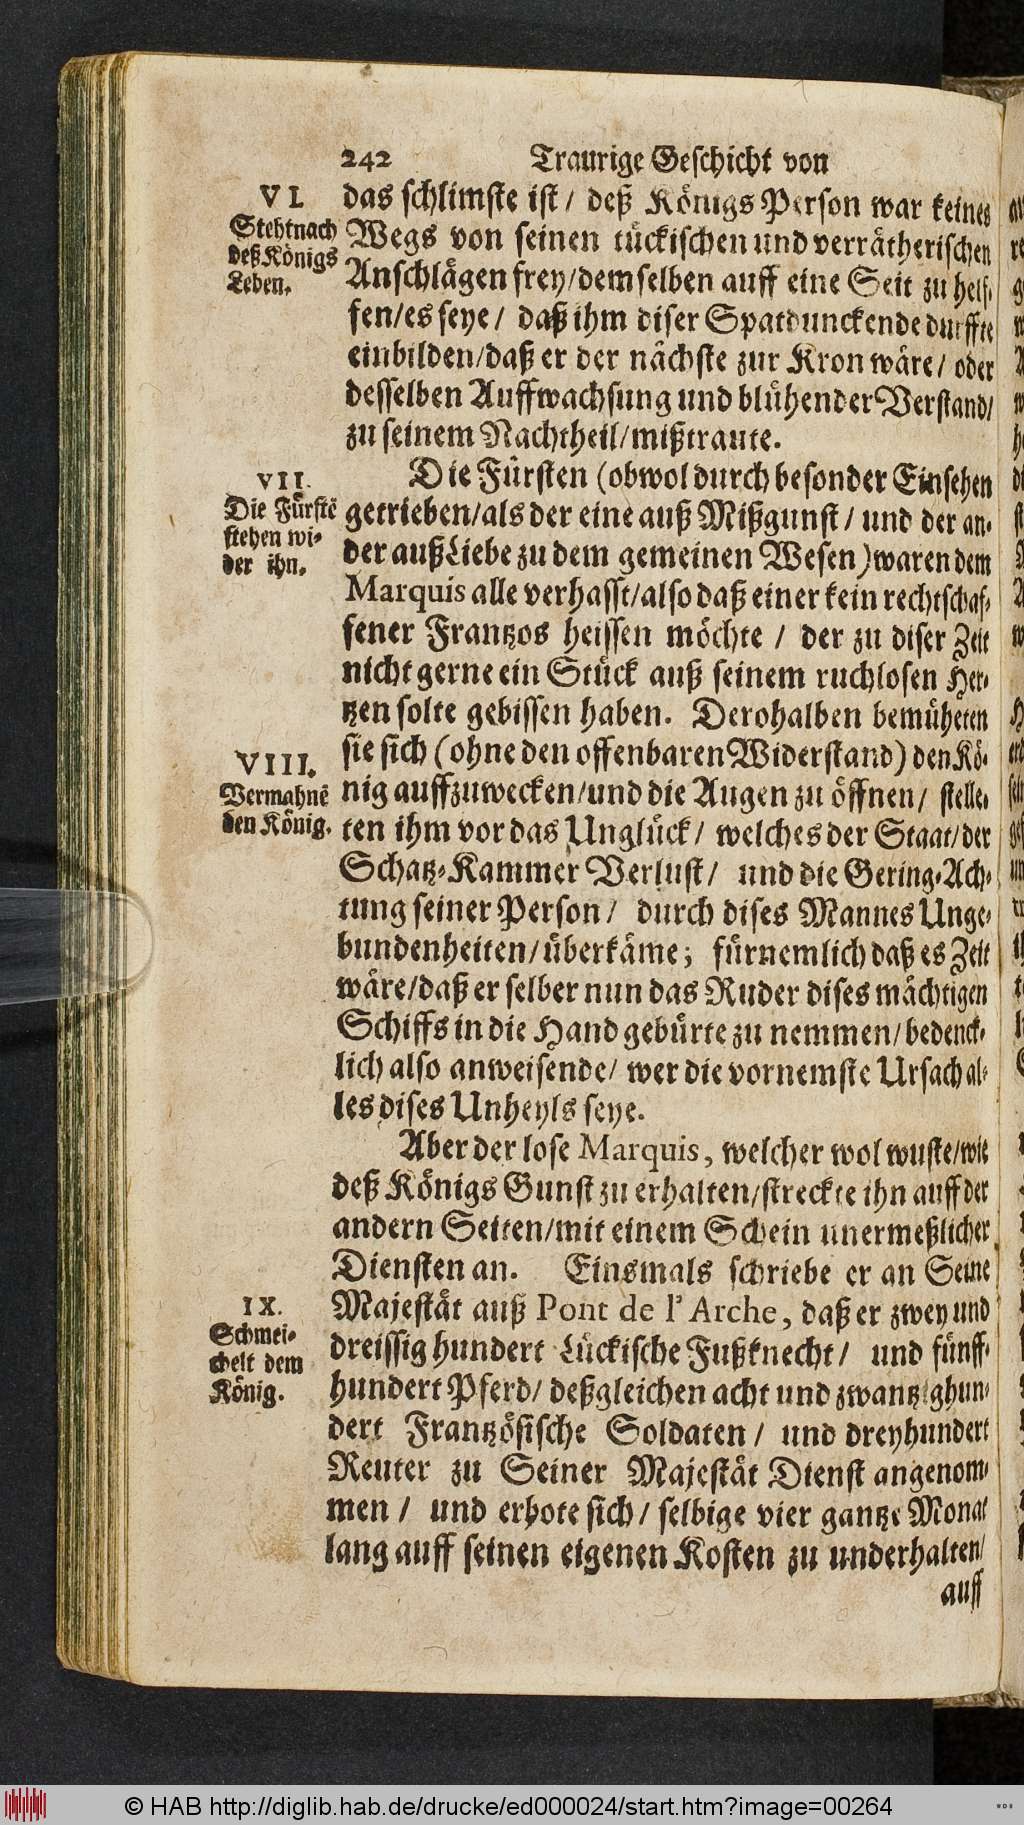 242 Traurige Geschicht von
VI.
Steht nach
deß Königs
Leben.
das schlimste ist / deß Königs Person war keines
Wegs von seinen tückischen und verrätherischen
Anschlägen frey/demselben auff eine Seit zu helf-
fen/es seye / daß ihm diser Spatdunckende durffte
einbilden/daß er der nächste zur Kron wäre / oder
desselben Auffwachsung und blühender Verstand/
zu seinem Nachtheil/mißtraute.
VII.
Die Fürstẽ
stehen wi-
der ihn.
Die Fürsten (obwol durch besonder Einsehen
getrieben/als der eine auß Mißgunst / und der an-
der auß Liebe zu dem gemeinen Wesen) waren dem
Marquis alle verhasst/also daß einer kein rechtschaf-
fener Frantzos heissen möchte / der zu diser Zeit
nicht gerne ein Stück auß seinem ruchlosen Her-
tzen solte gebissen haben. Derohalben bemüheten
sie sich (ohne den offenbaren Widerstand) den Kö-
VIII.
Vermahnẽ
den König.
nig auffzuwecken/und die Augen zu öffnen / stelle-
ten ihm vor das Unglück / welches der Staat/der
Schatz-Kammer Verlust / und die Gering-Ach-
tung seiner Person / durch dises Mannes Unge-
bundenheiten/überkäme; fürnemlich daß es Zeit
wäre/daß er selber nun das Ruder dises mächtigen
Schiffs in die Hand gebürte zu nemmen/bedenck-
lich also anweisende / wer die vornemste Ursach al-
les dises Unheyls seye.
Aber der lose Marquis, welcher wol wuste/wie
deß Königs Gunst zu erhalten/streckte ihn auff der
andern Seiten/mit einem Schein unermeßlicher
Diensten an. Einsmals schriebe er an Seine
IX.
Schmei-
chelt dem
König.
Majestät auß Pont de l' Arche, daß er zwey und
dreissig hundert Lückische Fußknecht / und fünff-
hundert Pferd / deßgleichen acht und zwantzig hun-
dert Frantzösische Soldaten / und dreyhundert
Reuter zu Seiner Majestät Dienst angenom-
men / und erbote sich / selbige vier gantze Monat
lang auff seinen eigenen Kosten zu underhalten/
auff
© HAB http://diglib.hab.de/drucke/ed000024/start.htm?image=00264